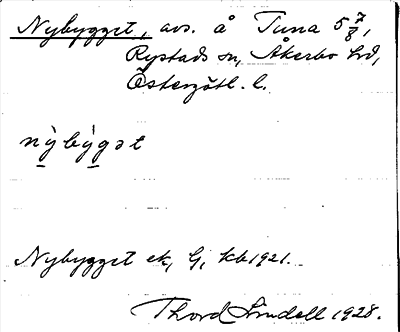 Nybygget, avs. å Tuna 5 7/8,
Rystads sn, Åkerbo hd,
Östergötl. l.
nỳbýgət
Nybygget ek, G, kb 1921.
Thord Lindell 1928.